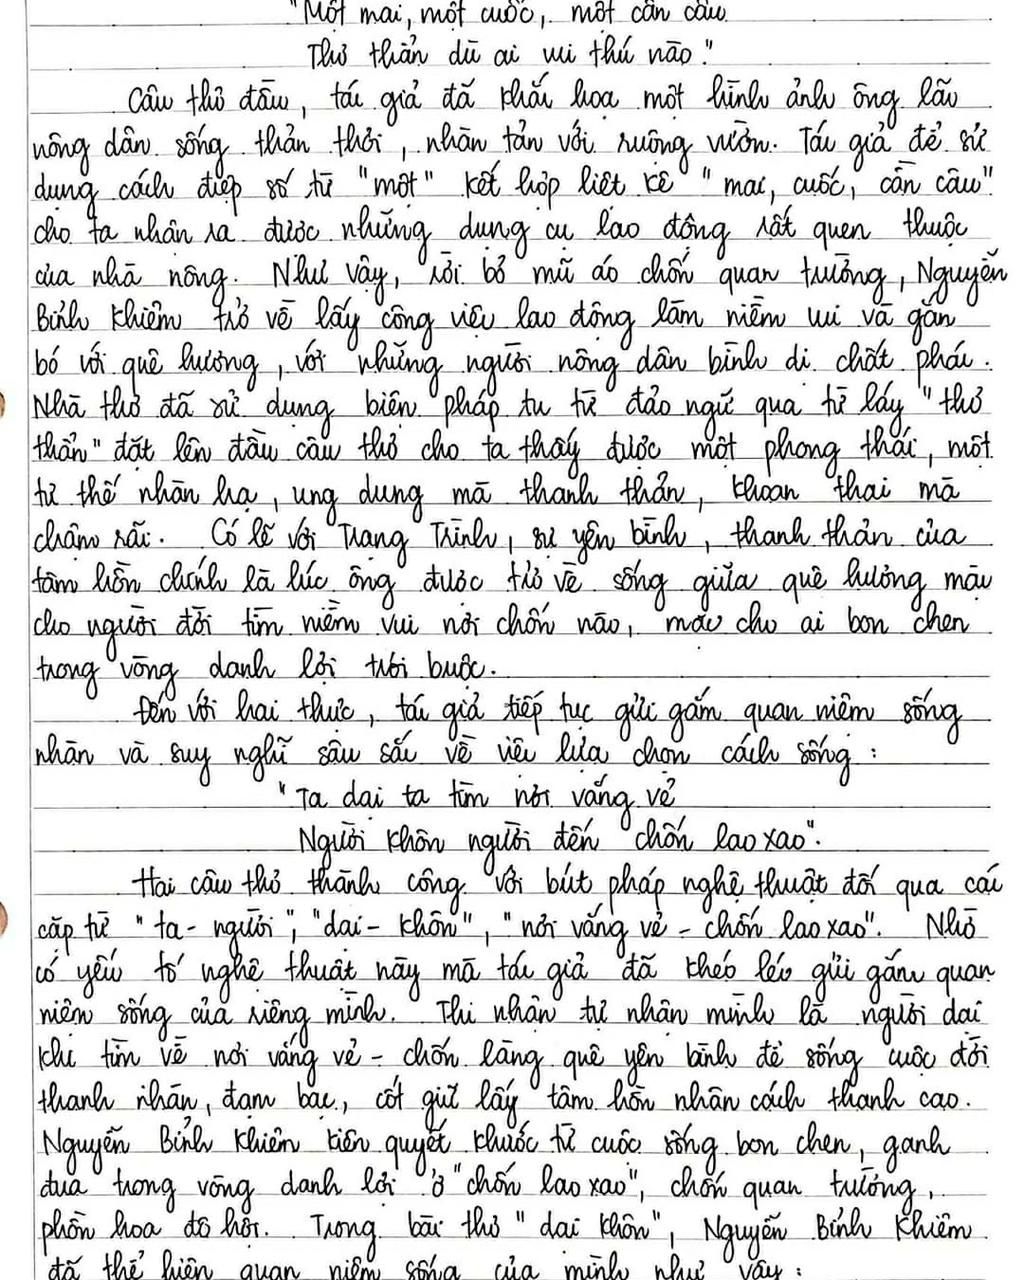 "Một mai, một cuốc, một cần câu
Thơ thẩn dù ai vui thú nào."
Câu thơ đầu, tác giả đã khắc họa một hình ảnh ông lão
nông dân sống thản thơi, nhàn tản với ruộng vườn. Tác giả để sử
dụng cách điệp số từ "một" kết hợp liệt kê "mai, cuốc, cần câu"
cho ta nhận ra được những dụng cụ lao động rất quen thuộc
của nhà nông. Như vậy, rời bỏ mũ áo chốn quan trường, Nguyễn
Bỉnh Khiêm trở về lấy công việc lao động làm niềm vui và gắn
bó với quê hương, với những người nông dân bình dị chất phác.
Nhà thơ đã sử dụng biện pháp tu từ đảo ngữ qua từ láy "thơ
thẩn" đặt lên đầu câu thơ cho ta thấy được một phong thái, một
tư thế nhàn hạ, ung dung mà thanh thản, khoan thai mà
chậm rãi. Có lẽ với Trạng Trình, sự yên bình, thanh thản của
tâm hồn chính là lúc ông được trở về sống giữa quê hương mặc
cho người đời tìm niềm vui nơi chốn nào, mặc cho ai bon chen
trong vòng danh lợi trói buộc.
Đến với hai thực, tác giả tiếp tục gửi gắm quan niệm sống
nhàn và suy nghĩ sâu sắc về việc lựa chọn cách sống:
"Ta dại ta tìm nơi vắng vẻ
Người khôn người đến chốn lao xao".
Hai câu thơ thành công với bút pháp nghệ thuật đối qua các
cặp từ "ta - người", "dại - khôn", "nơi vắng vẻ - chốn lao xao". Nhờ
có yếu tố nghệ thuật này mà tác giả đã khéo léo gửi gắm quan
niệm sống của riêng mình. Thi nhân tự nhận mình là người dại
khi tìm về nơi vắng vẻ - chốn làng quê yên bình để sống cuộc đời
thanh nhàn, đạm bạc, cốt giữ lấy tâm hồn nhân cách thanh cao.
Nguyễn Bỉnh Khiêm kiên quyết khước từ cuộc sống bon chen, ganh
đua trong vòng danh lợi ở "chốn lao xao", chốn quan trường,
phồn hoa đô hội. Trong bài thơ "dại khôn", Nguyễn Bỉnh Khiêm
đã thể hiện quan niệm sống của mình như vậy: